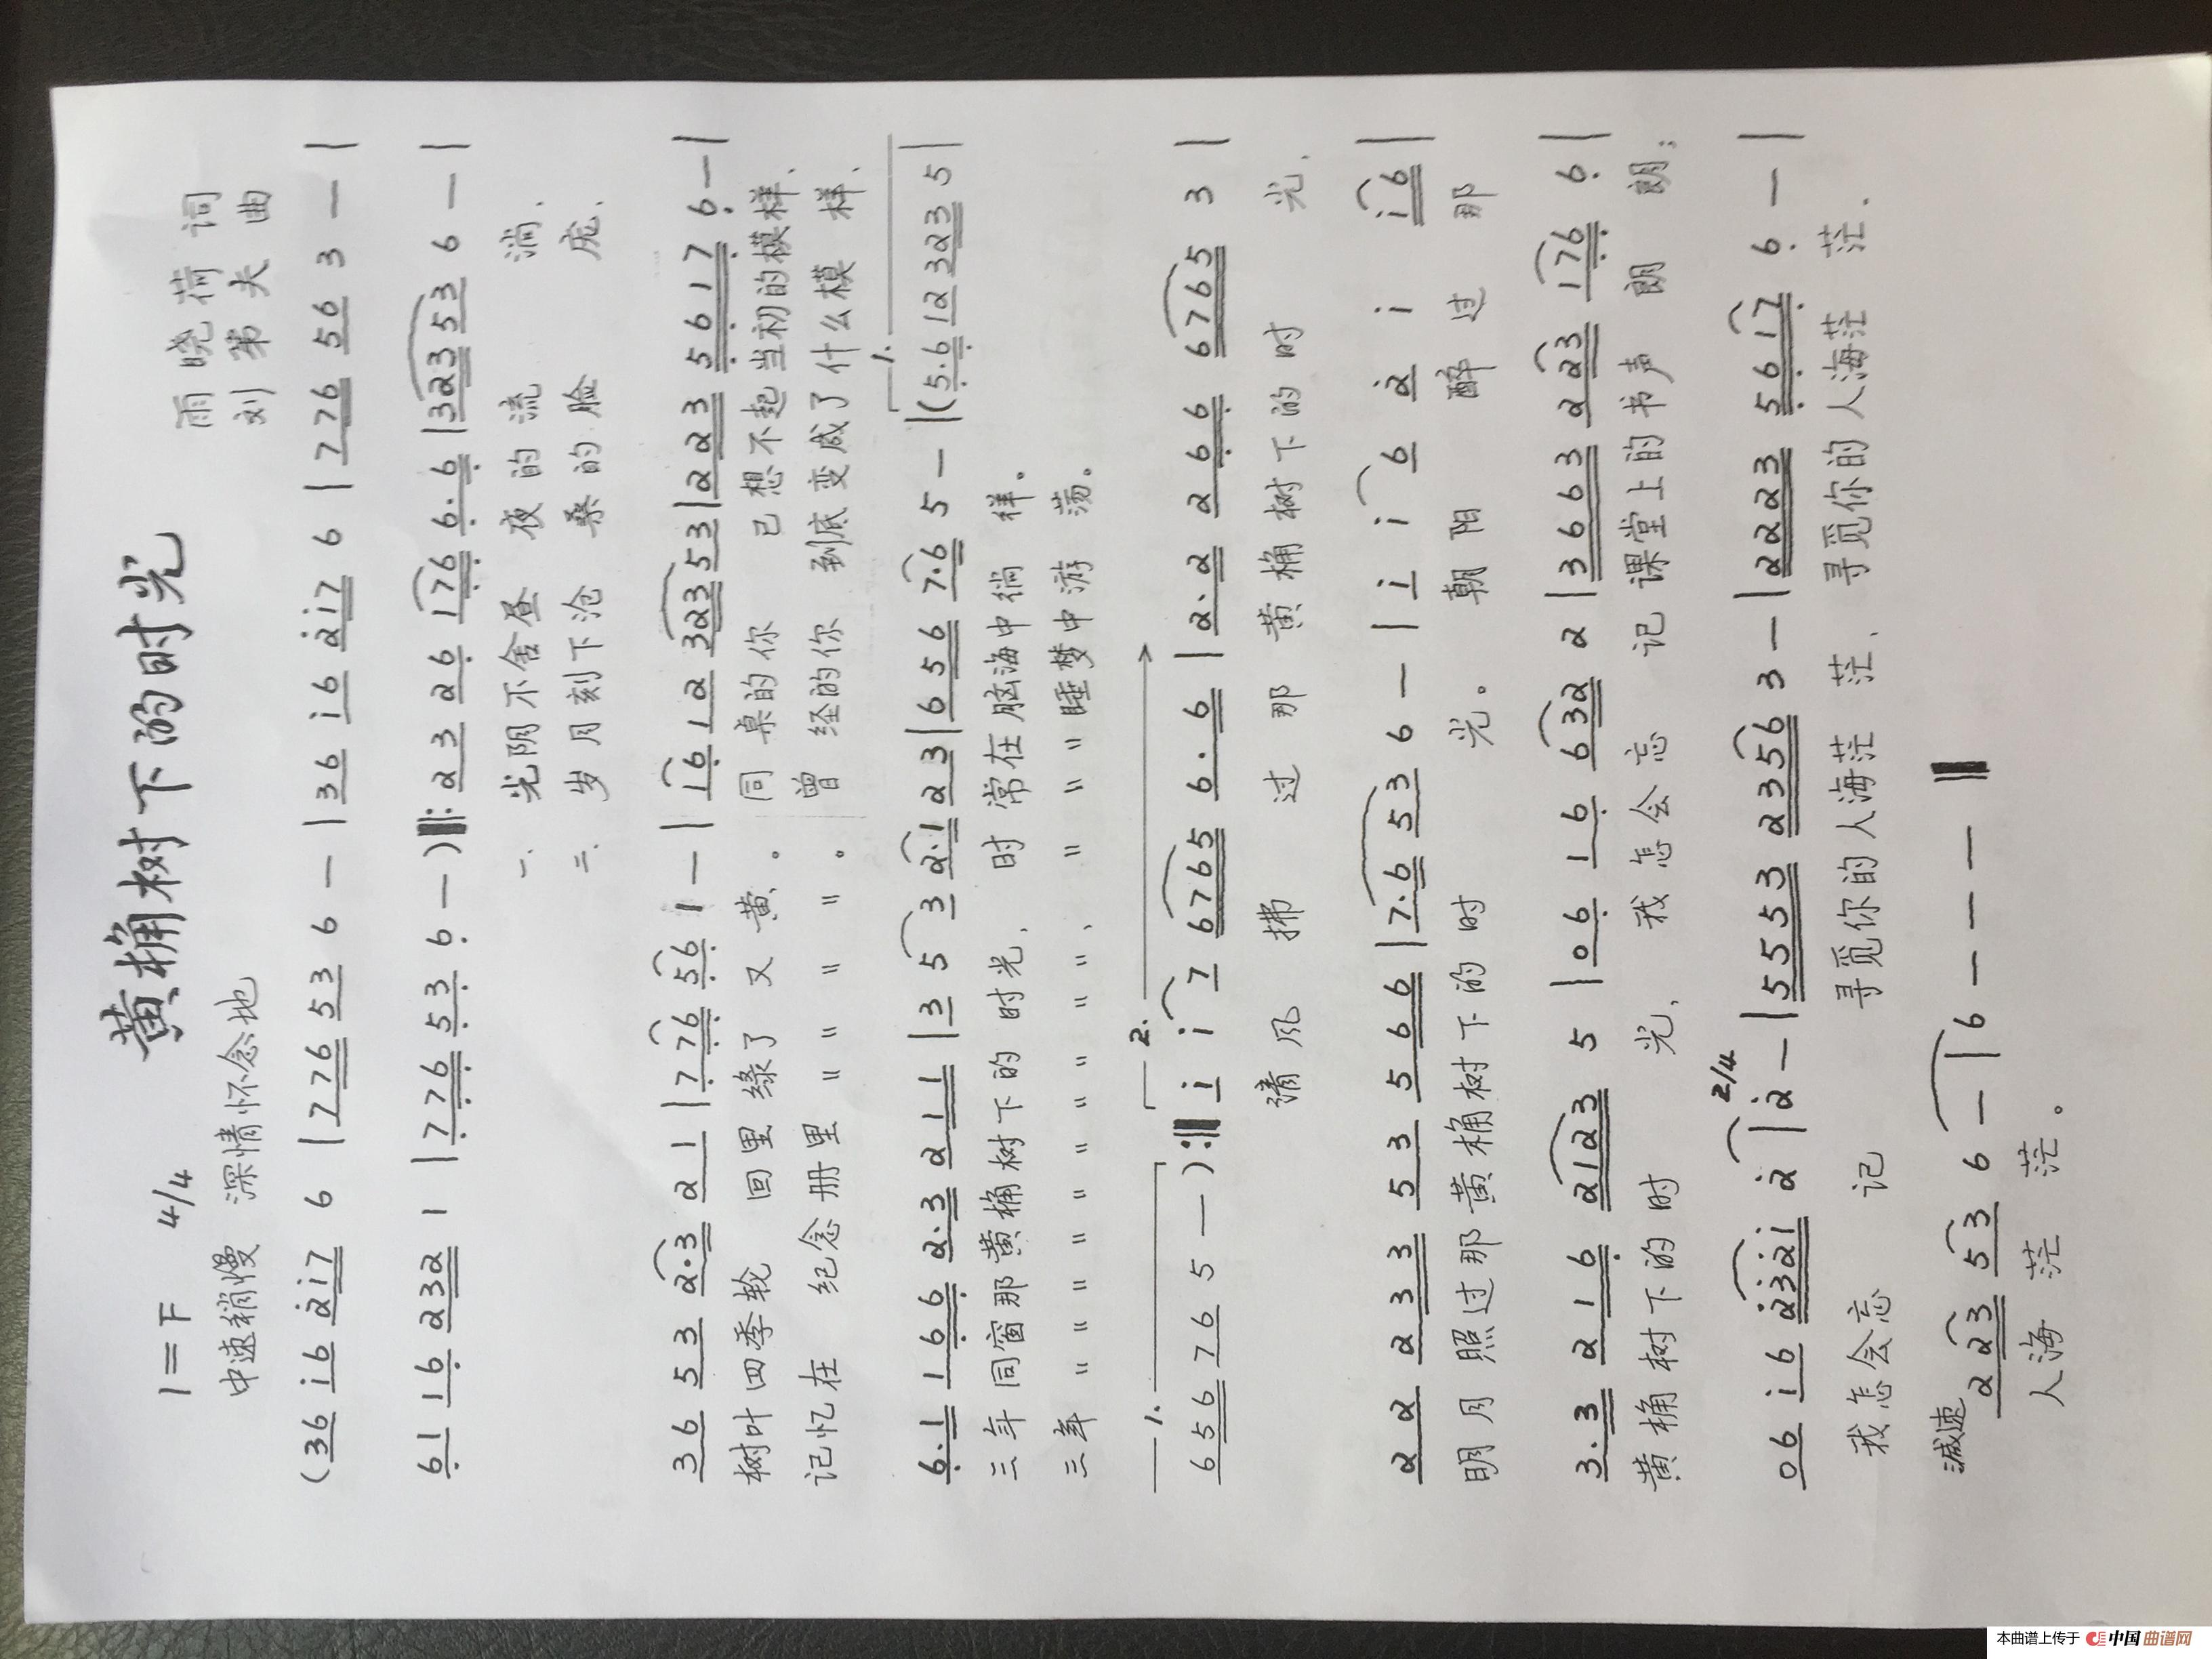 黄桷树下的时光
1=F 4/4
雨晓荷 词
中速稍慢 深情怀念地
刘第夫 曲
(36 i6 2i7 6 | 776 53 6 — | 36 i6 2i7 6 | 776 56 3 — |
61 16 232 1 | 776 53 6 — ) ‖: 23 26 176 6·6 | 323 53 6 — |
一. 光阴不舍昼 夜的流 淌,
二. 岁月刻下沧 桑的脸 庞,
36 53 2·3 21 | 776 56 1 — | 16 12 323 53 | 223 5617 6 — |
树叶四季轮 回里 绿了 又黄。 同桌的你 已想不起当初的模样,
记忆在 纪念册里 〃 〃 〃 。 曾经的你 到底变成了什么模样,
1.
6·1 166 2·3 211 | 3 5 3 2·1 23 | 656 7·6 5 — | (5·6 12 323 5 |
三年同窗那黄桷树下的 时光, 时常在脑海中徜 徉。
三年 〃 〃 〃 〃 〃 〃 〃 〃 〃 〃, 〃 〃 〃 睡梦中游 荡。
1. 2.
656 76 5 — ) :‖ i i 7 6765 6·6 | 2·2 266 6765 3 |
清风 拂 过那 黄桷树下的时 光,
22 233 53 566 | 7·6 53 6 — | i i 6 2 i i6 |
明月照过那黄桷树下的时 光。 朝阳 醉过 那
3·3 216 2123 5 | 06 16 632 2 | 3663 223 176 6 |
黄桷树下的时 光, 我怎会忘 记 课堂上的书声 朗 朗;
2/4
06 i6 232i 2 | 2 — | 5553 2356 3 — | 2223 5617 6 — |
我怎会忘 记 寻觅你的人海茫 茫, 寻觅你的人海茫 茫,
减速
223 53 6 — | 6 — — — ‖
人海 茫 茫。
本曲谱上传于 中国曲谱网